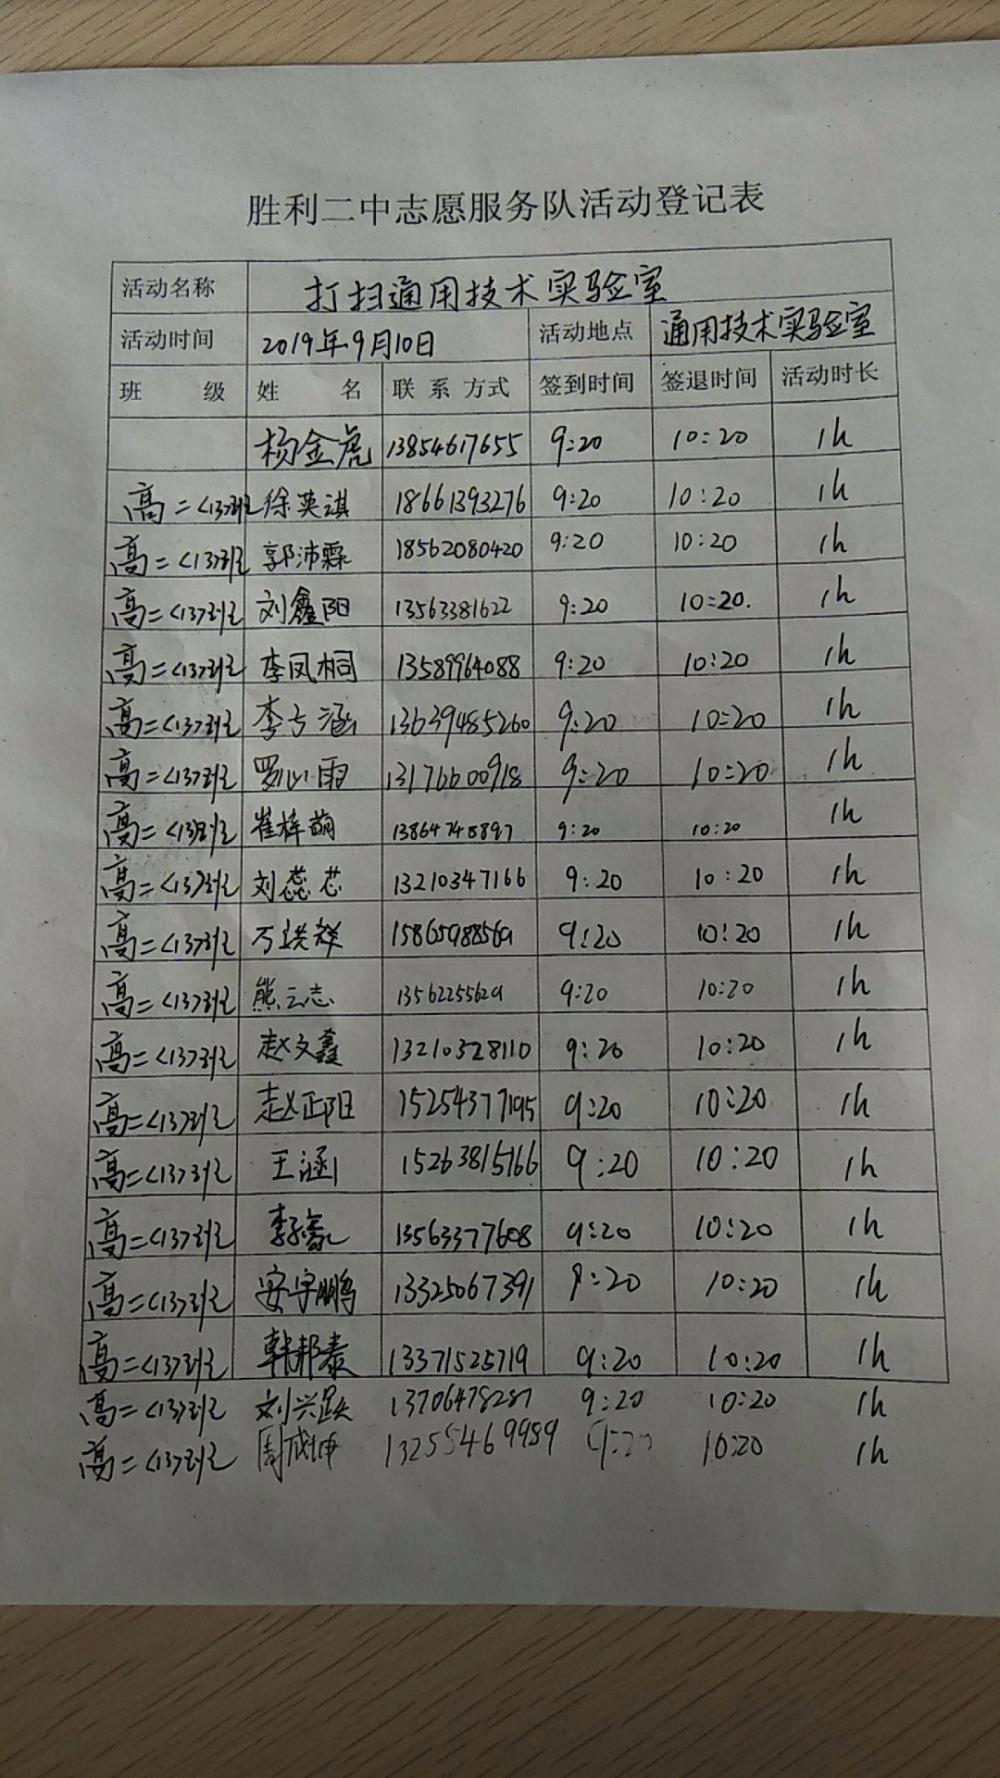 胜利二中志愿服务队活动登记表
活动名称 打扫通用技术实验室
活动时间 2019年9月10日 活动地点 通用技术实验室
班 级 姓 名 联 系 方式 签到时间 签退时间 活动时长
杨金虎 13854617655 9:20 10:20 1h
高二<13>班 徐英淇 18661393276 9:20 10:20 1h
高二<13>班 郭沛霖 18562080420 9:20 10:20 1h
高二<13>班 刘鑫阳 13563381622 9:20 10:20. 1h
高二<13>班 李凤桐 13589964088 9:20 10:20 1h
高二<13>班 李 涵 13639485260 9:20 10:20 1h
高二<13>班 罗心雨 13176600918 9:20 10:20 1h
高二<13>班 崔梓萌 9:20 10:20 1h
高二<13>班 刘蕊芯 13210347166 9:20 10:20 1h
高二<13>班 9:20 10:20 1h
高二<13>班 熊云志 9:20 10:20 1h
高二<13>班 赵文鑫 13210328110 9:20 10:20 1h
高二<13>班 赵正阳 15254377195 9:20 10:20 1h
高二<13>班 王涵 15263815166 9:20 10:20 1h
高二<13>班 13563377608 9:20 10:20 1h
高二<13>班 安宇鹏 13325067391 9:20 10:20 1h
高二<13>班 韩邦泰 13371525719 9:20 10:20 1h
高二<13>班 刘兴跃 13706478287 9:20 10:20 1h
高二<13>班 周成坤 13255469989 9:20 10:20 1h